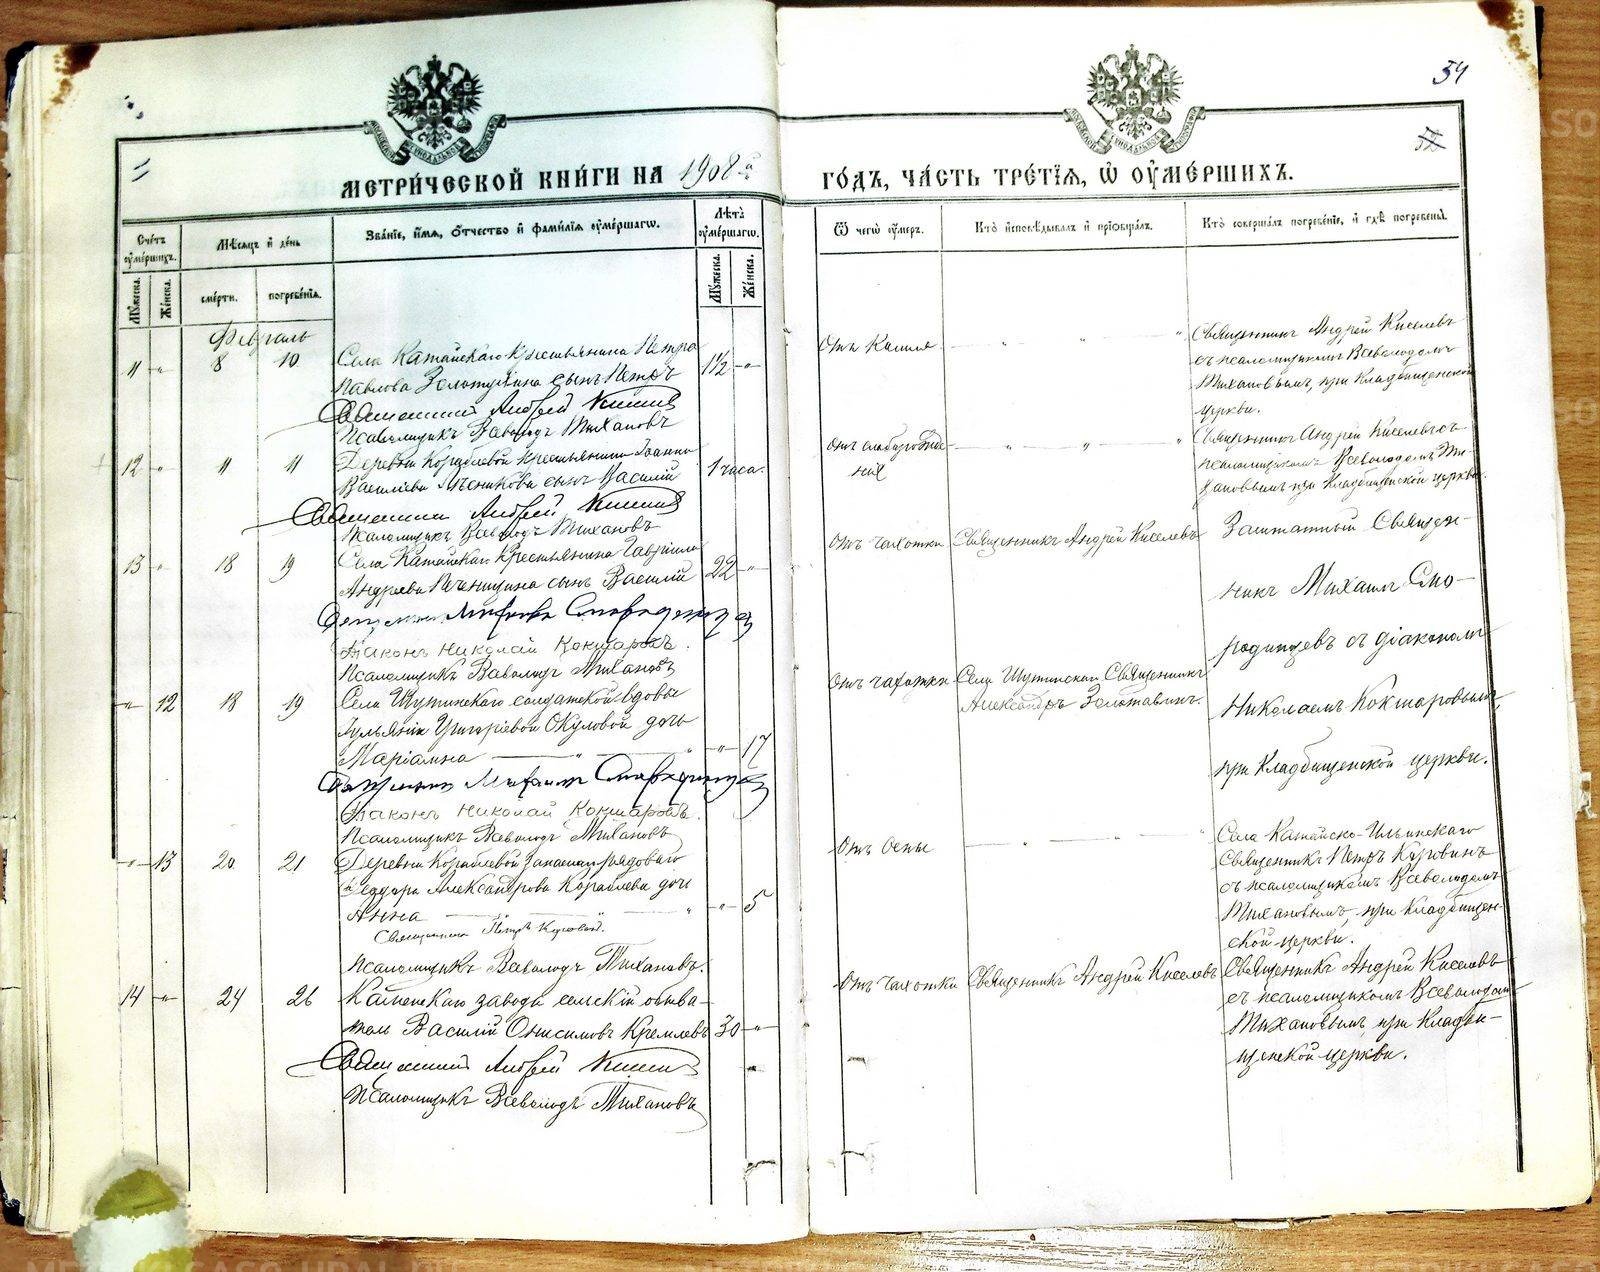 54
МЕТРИ́ЧЕСКОЙ КНИ́ГИ НА 1908 й
ГО́ДЪ, ЧА́СТЬ ТРЕ́ТІЯ, Ѡ ОУМЕ́РШИХЪ.
Сче́тъ оуме́ршихъ.
Мѣсяцъ и день
Зва́нїе, и́мя, о́тчество и фами́лїя оуме́ршагѡ.
Лѣтъ оуме́ршагѡ.
Ѿ чегѡ̀ оу́меръ.
Кто̀ исповѣ́дывалъ и прїобща́лъ.
Кто̀ соверша́лъ погребе́нїе, и гдѣ̀ погребены̀.
Му́жеска.
Же́нска.
сме́рти.
погребе́нїя.
Му́жеска.
Же́нска.
Февраль
11 „ 8 10 Села Катайскаго крестьянина Петра
Павлова Золотухина сынъ Петръ 1½ „
Священникъ Андрей Киселевъ
Псаломщикъ Всеволодъ Тихановъ
отъ кашля
Священникъ Андрей Киселевъ
съ псаломщикомъ Всеволодомъ
Тихановымъ, при кладбищенской
церкви.
12 „ 11 11 Деревни Кораблевой крестьянина Іоанна
Василіева сынъ Василій 1 часа.
Священникъ Андрей Киселевъ
Псаломщикъ Всеволодъ Тихановъ
отъ слаборожде-
нія
Священникъ Андрей Киселевъ съ
псаломщикомъ Всеволодомъ Ти-
хановымъ при кладбищенской церкви.
13 „ 18 19 Села Катайскаго крестьянина Гавріила
Андреева Печенкина сынъ Василій 22 „
Священникъ Михаилъ Смородинцевъ
Діаконъ Николай Кокшаровъ.
Псаломщикъ Всеволодъ Тихановъ
отъ чахотки
Священникъ Андрей Киселевъ
Заштатный Священ-
никъ Михаилъ Смо-
родинцевъ съ діакономъ
Николаемъ Кокшаровымъ,
при кладбищенской церкви.
„ 12 18 19 Села Шутинскаго солдатской вдовы
Григоріевой Окуловой дочь
Маріамна „ 17
Священникъ Михаилъ Смородинцевъ
Діаконъ Николай Кокшаровъ.
Псаломщикъ Всеволодъ Тихановъ
отъ чахотки
Села Шутинскаго Священникъ
Александръ Золотавинъ.
„ 13 20 21 Деревни Кораблевой запаснаго рядового
Ѳеодора Александрова Кораблева дочь
Анна „ 5
Священникъ Петръ Коровинъ.
Псаломщикъ Всеволодъ Тихановъ.
отъ оспы
Села Катайско-Ильинскаго
Священникъ Петръ Коровинъ
съ псаломщикомъ Всеволодомъ
Тихановымъ, при кладбищен-
ской церкви.
14 „ 24 26 Каменскаго завода сельскій обыва-
тель Василій Онисимовъ Кремлевъ 30 „
Священникъ Андрей Киселевъ
Псаломщикъ Всеволодъ Тихановъ
отъ чахотки
Священникъ Андрей Киселевъ
Священникъ Андрей Киселевъ
съ псаломщикомъ Всеволодомъ
Тихановымъ, при кладби-
щенской церкви.